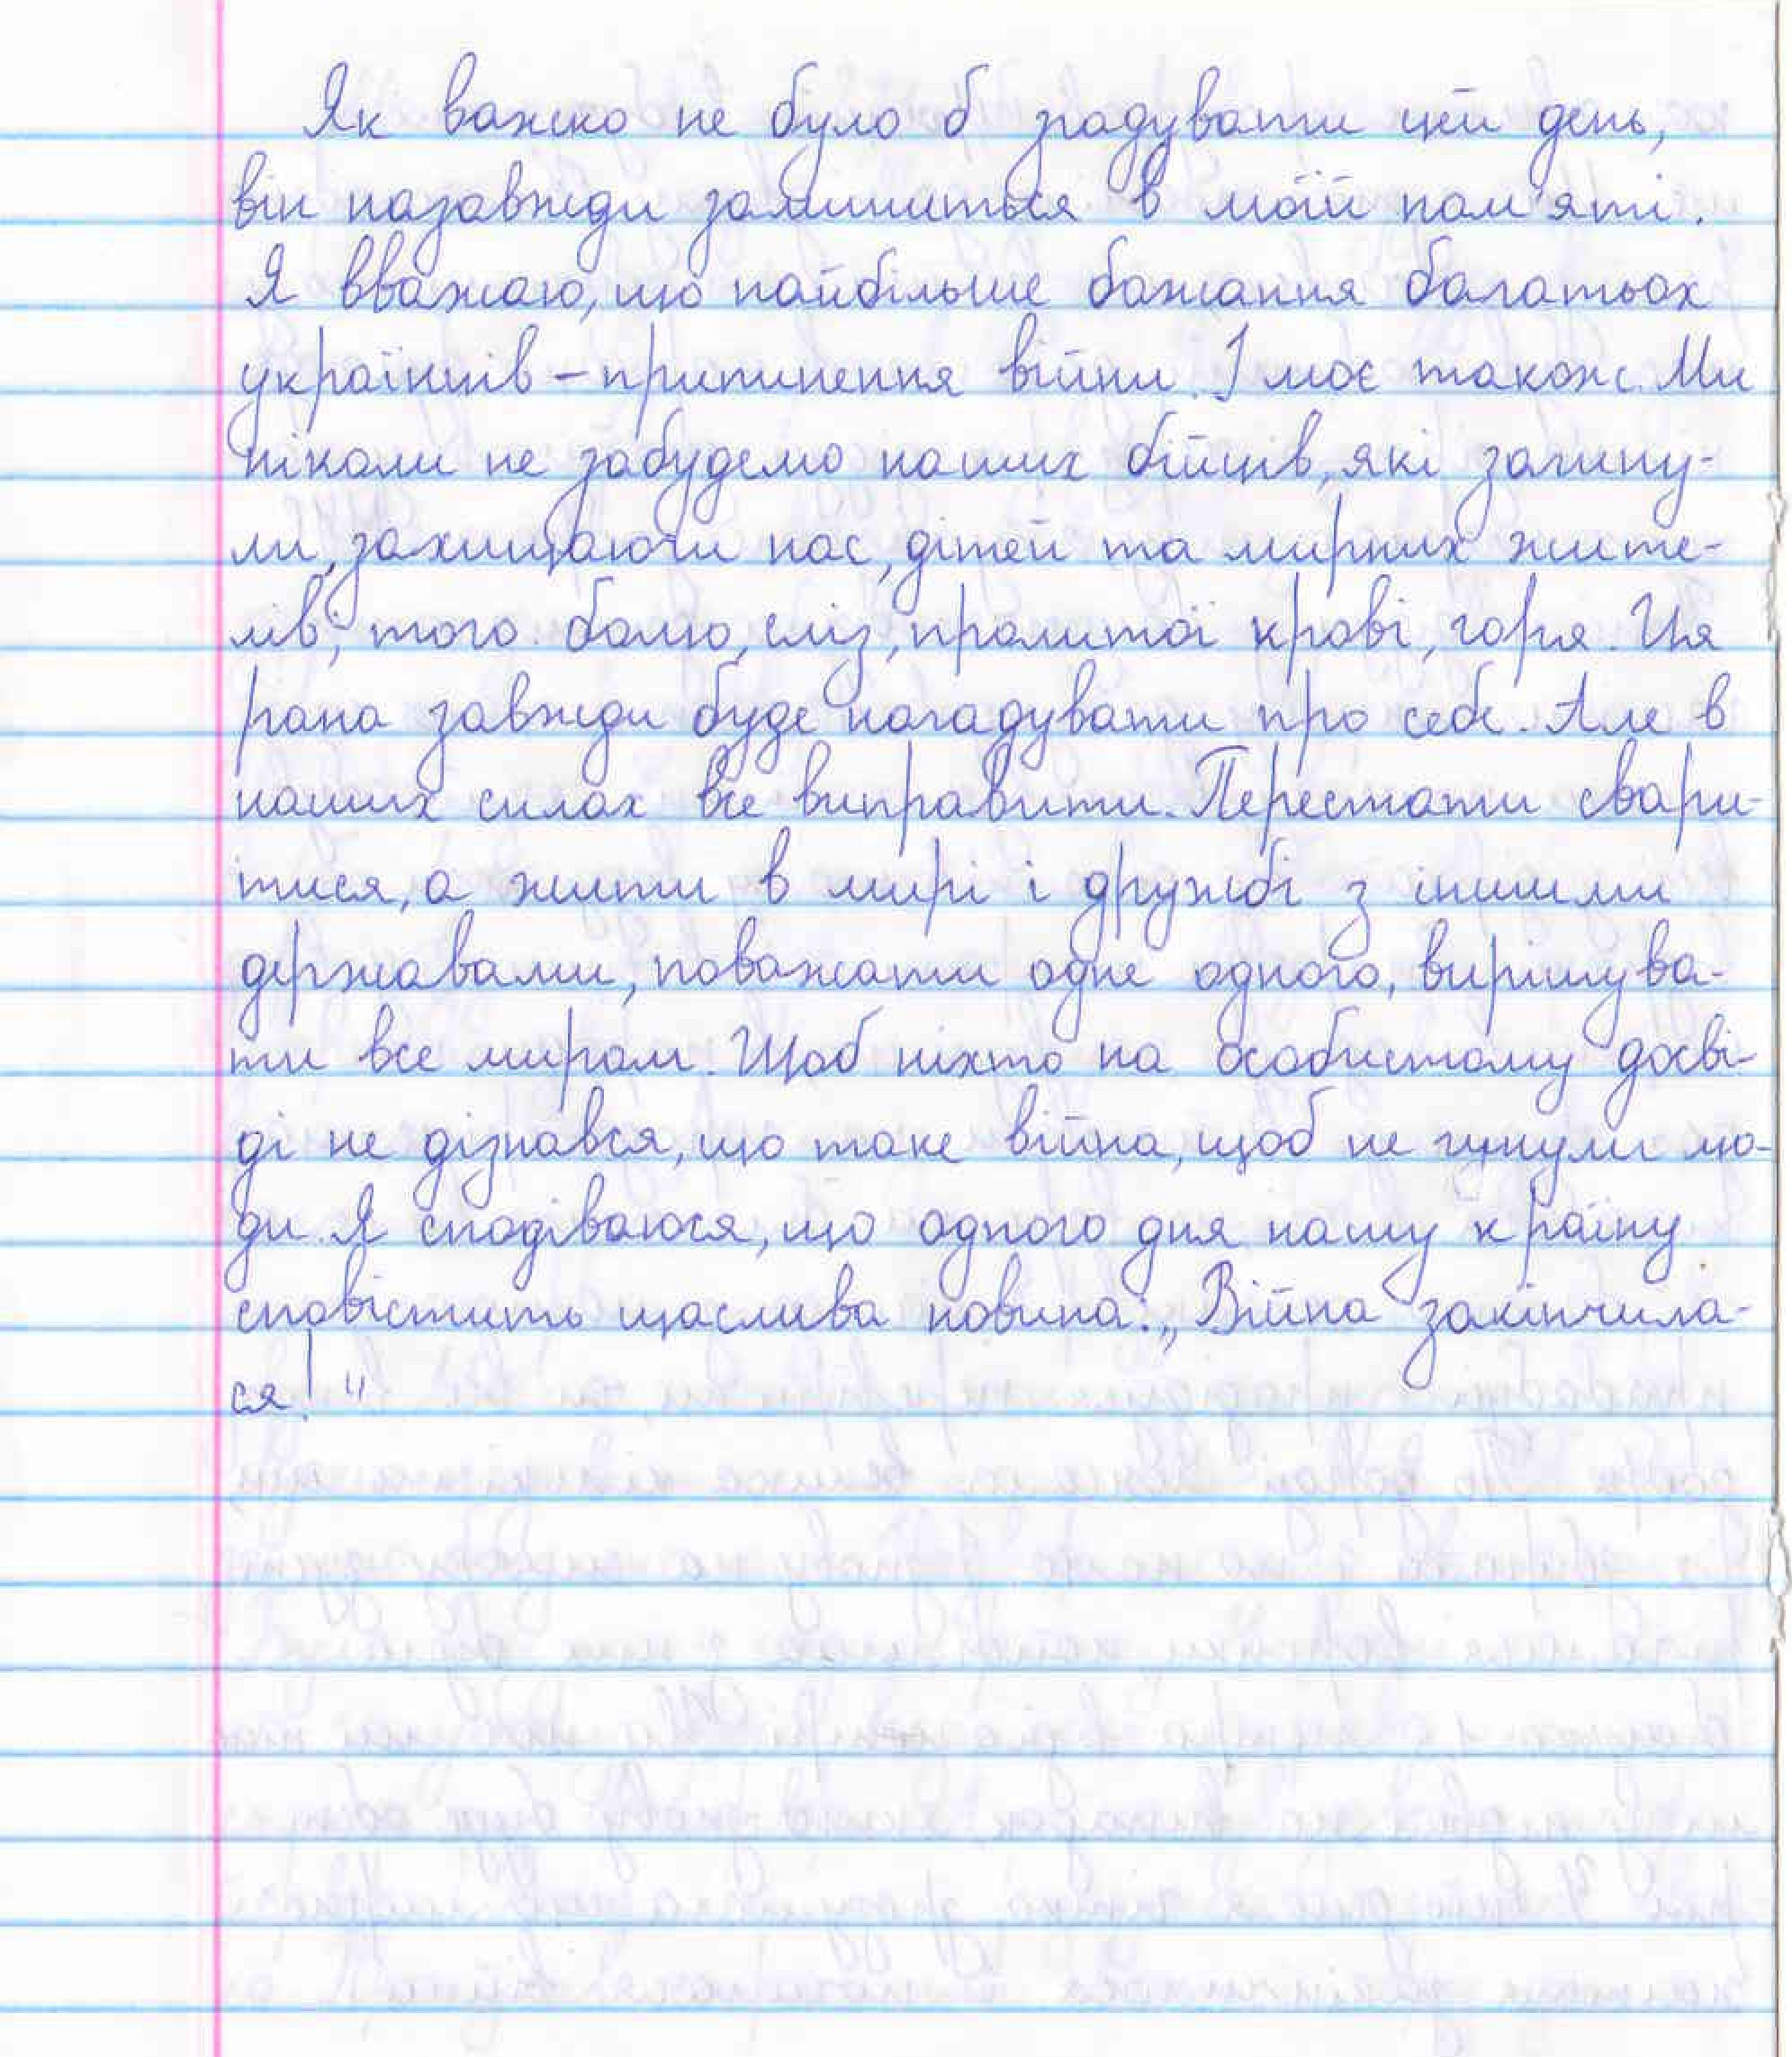 Як важко не було б згадувати цей день,
він назавжди залишиться в моїй пам'яті.
Я вважаю, що найбільше бажання багатьох
українців – припинення війни. І моє також. Ми
ніколи не забудемо наших бійців, які загину-
ли, захищаючи нас, дітей та мирних жите-
лів; того болю, сліз, пролитої крові, горя. Ця
рана завжди буде нагадувати про себе. Але в
наших силах все виправити. Перестати свари-
тися, а жити в мирі і дружбі з іншими
державами, поважати одне одного, вирішува-
ти все миром. Щоб ніхто на особистому досві-
ді не дізнався, що таке війна, щоб не гинули лю-
ди. Я сподіваюся, що одного дня нашу країну
сповістить щаслива новина: „Війна закінчила-
ся!"